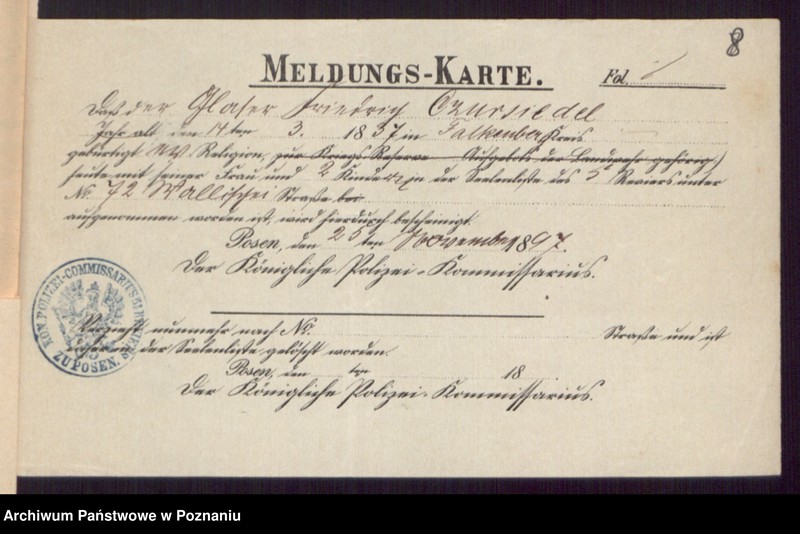 8
MELDUNGS-KARTE. Fol.
Daß der Glaser Friedrich
Jahr alt den 14ten 3. 1837 in Falkenberg Kreis
gebürtigt Religion, zur Kriegs-Reserve Aufgebots der Landwehr gehörig,
heute mit seiner Frau und 2 Kindern in der Seelenliste des 5 Reviers unter
No. 72 Wallischei Straße bei
aufgenommen worden ist, wird hierdurch bescheinigt.
Posen, den 25ten November 1897.
Der Königliche Polizei-Kommissarius.
Verzieht nunmehr nach No. Straße und ist
der Seelenliste gelöscht worden.
Posen, den ten 18
Der Königliche Polizei-Kommissarius.
KÖN. POLIZEI-COMMISSARIUS REVIERS
ZU POSEN.
Archiwum Państwowe w Poznaniu